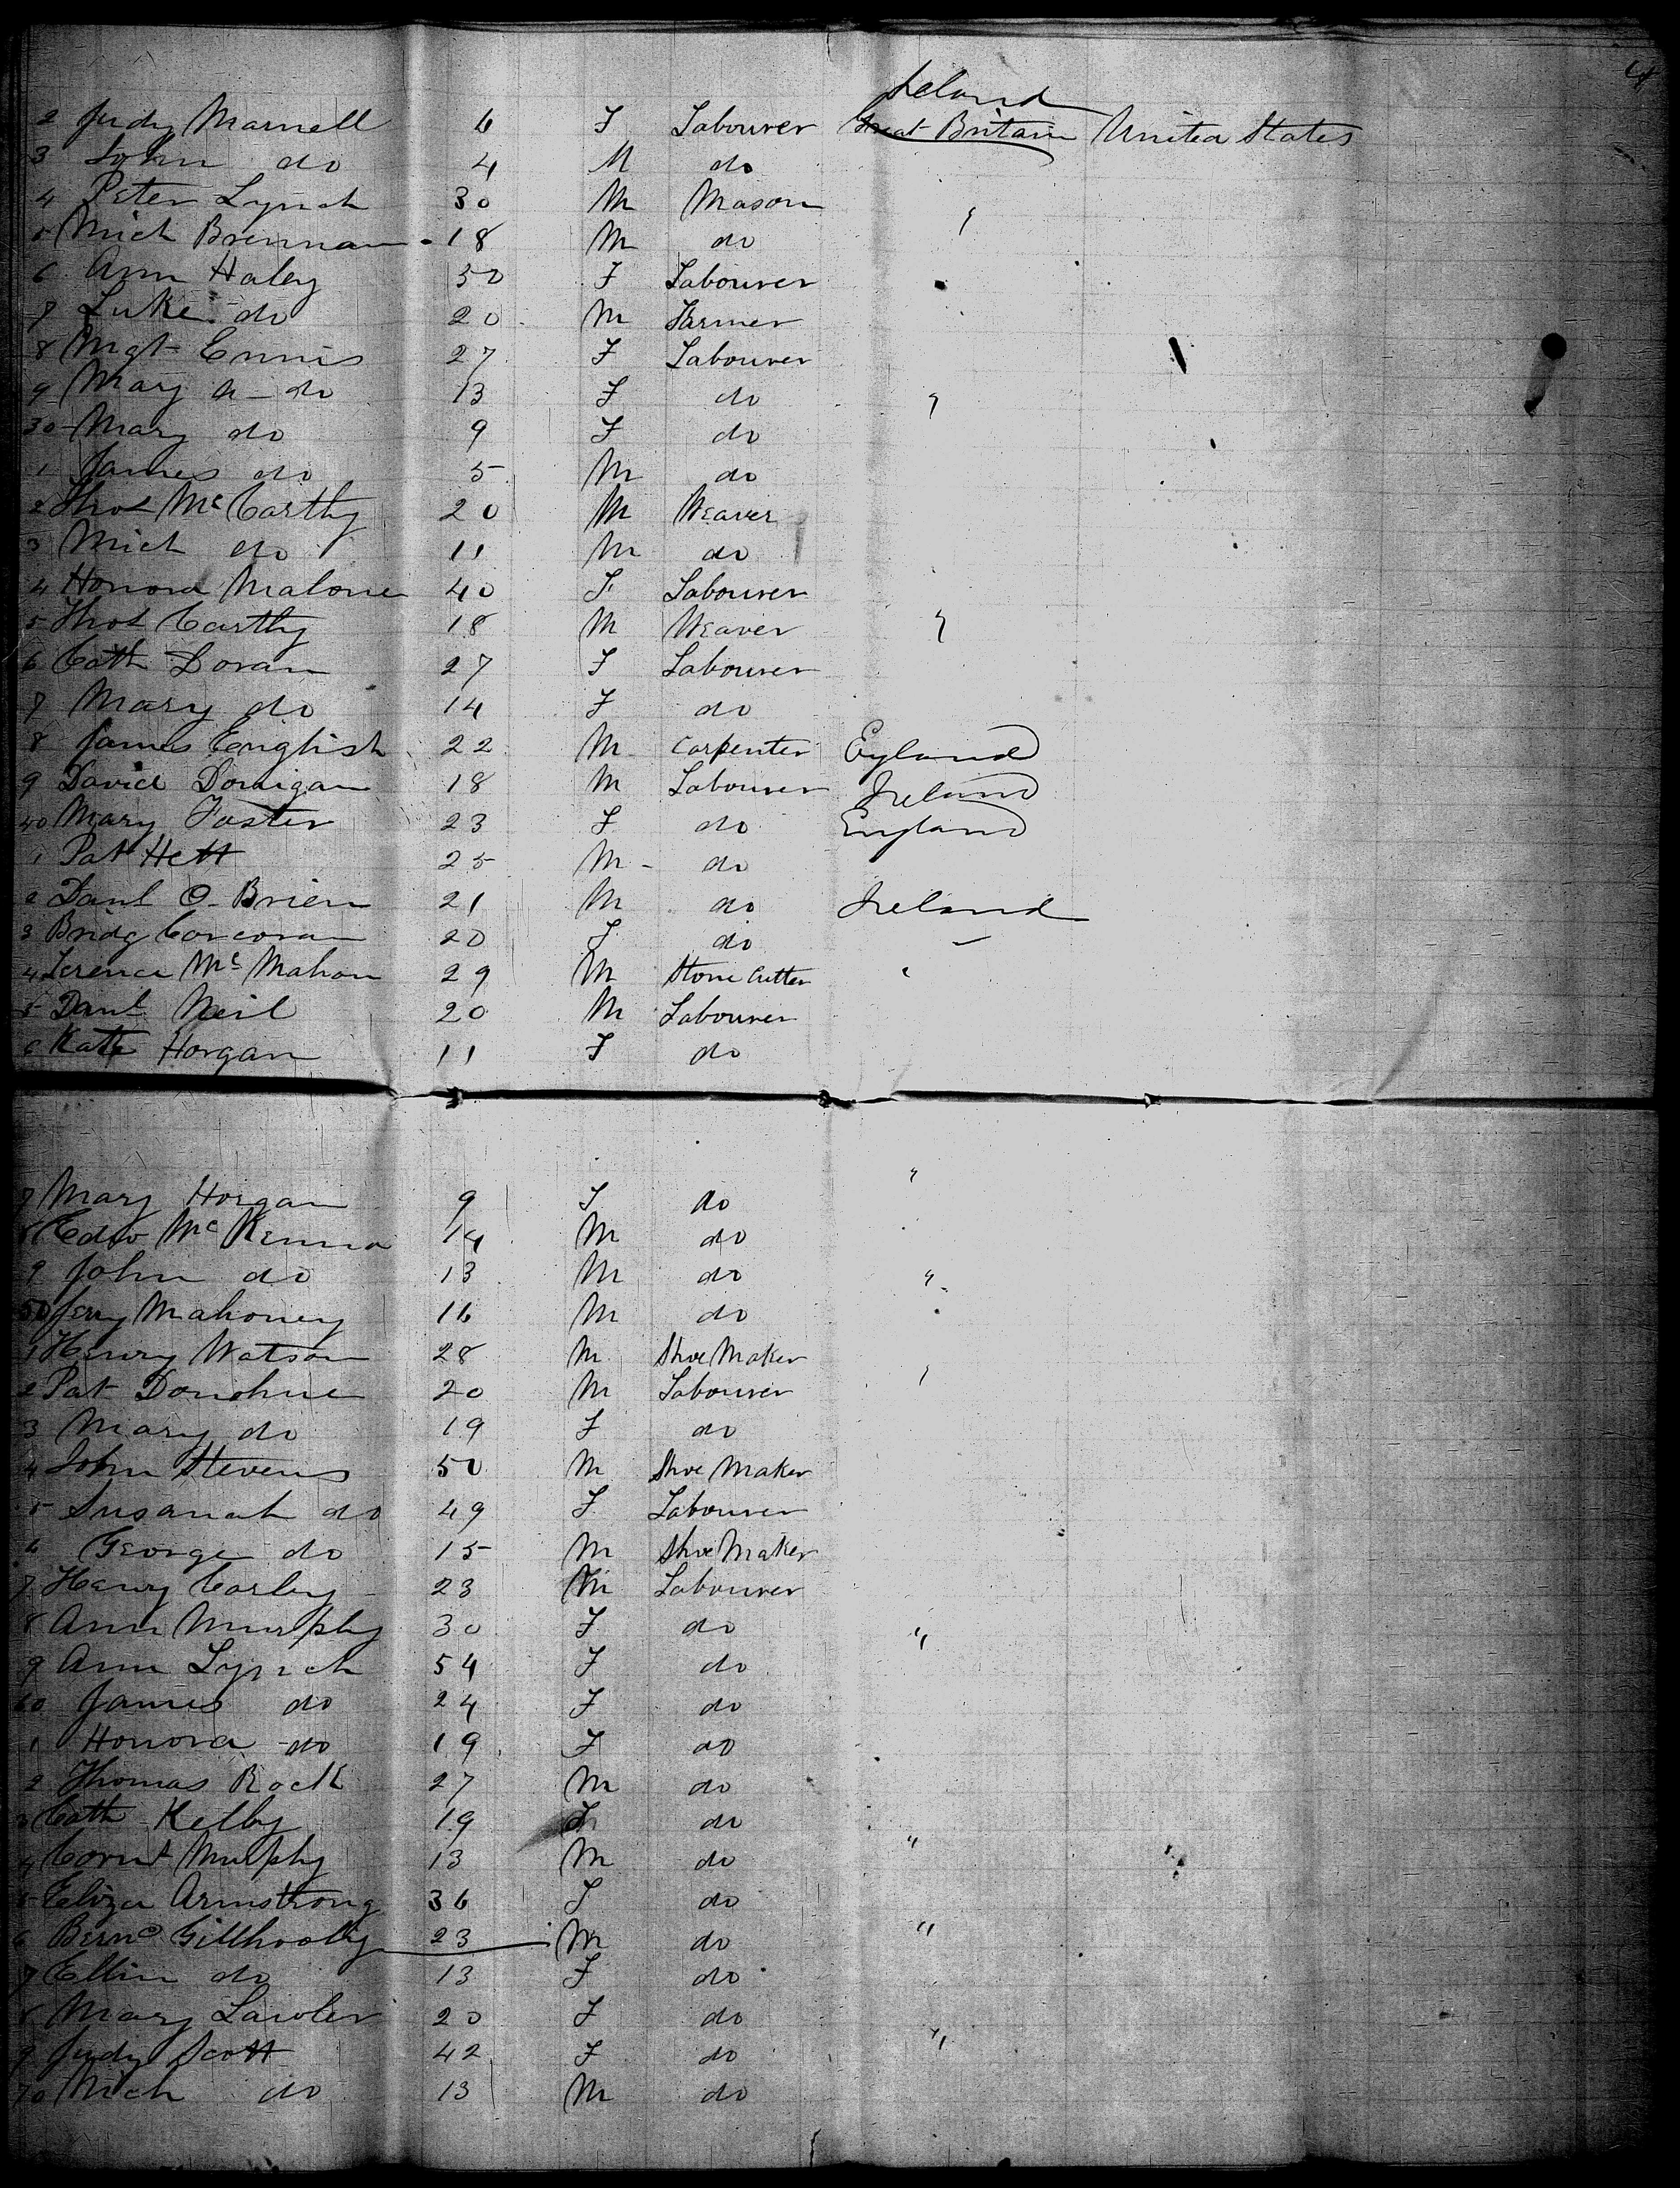 4
Ireland
2 Judy Marnell 6 F Labourer Great Britain United States
3 John do 4 M do
4 Peter Lynch 30 M Mason "
5 Mich Brennan 18 M do
6 Ann Haley 50 F Labourer
7 Luke do 20 M Farmer
8 Mgt Ennis 27 F Labourer
9 Mary A do 13 F do "
30 Mary do 9 F do
1 James do 5 M do
2 Thos McCarthy 20 M Weaver
3 Mich do 11 M do
4 Honora Malone 40 F Labourer
5 Thos Carthy 18 M Weaver "
6 Cath Doran 27 F Labourer
7 Mary do 14 F do
8 James English 22 M Carpenter England
9 David Donigan 18 M Labourer Ireland
40 Mary Foster 23 F do England
1 Pat Hett 25 M do
2 Danl O Brien 21 M do Ireland
3 Bridg Corcoran 20 F do
4 Terence McMahon 29 M Stone Cutter
5 Danl Neil 20 M Labourer
6 Kate Horgan 11 F do
7 Mary Horgan 9 F do "
8 Edw McKenna 14 M do
9 John do 13 M do "
50 Jerry Mahoney 16 M do
1 Henry Watson 28 M Shoe Maker
2 Pat Donohue 20 M Labourer
3 Mary do 19 F do
4 John Stevens 50 M Shoe Maker
5 Susanah do 49 F Labourer
6 George do 15 M Shoe Maker
7 Henry Corley 23 M Labourer
8 Ann Murphy 30 F do "
9 Ann Lynch 54 F do
60 James do 24 F do
1 Honora do 19 F do
2 Thomas Rock 27 M do
3 Cath Kelly 19 F do
4 Corns Murphy 13 M do "
5 Eliza Armstrong 36 F do
6 Bernd Gillhooly 23 M do "
7 Ellin do 13 F do
8 Mary Lawler 20 F do
9 Judy Scott 42 F do "
70 Mich do 13 M do